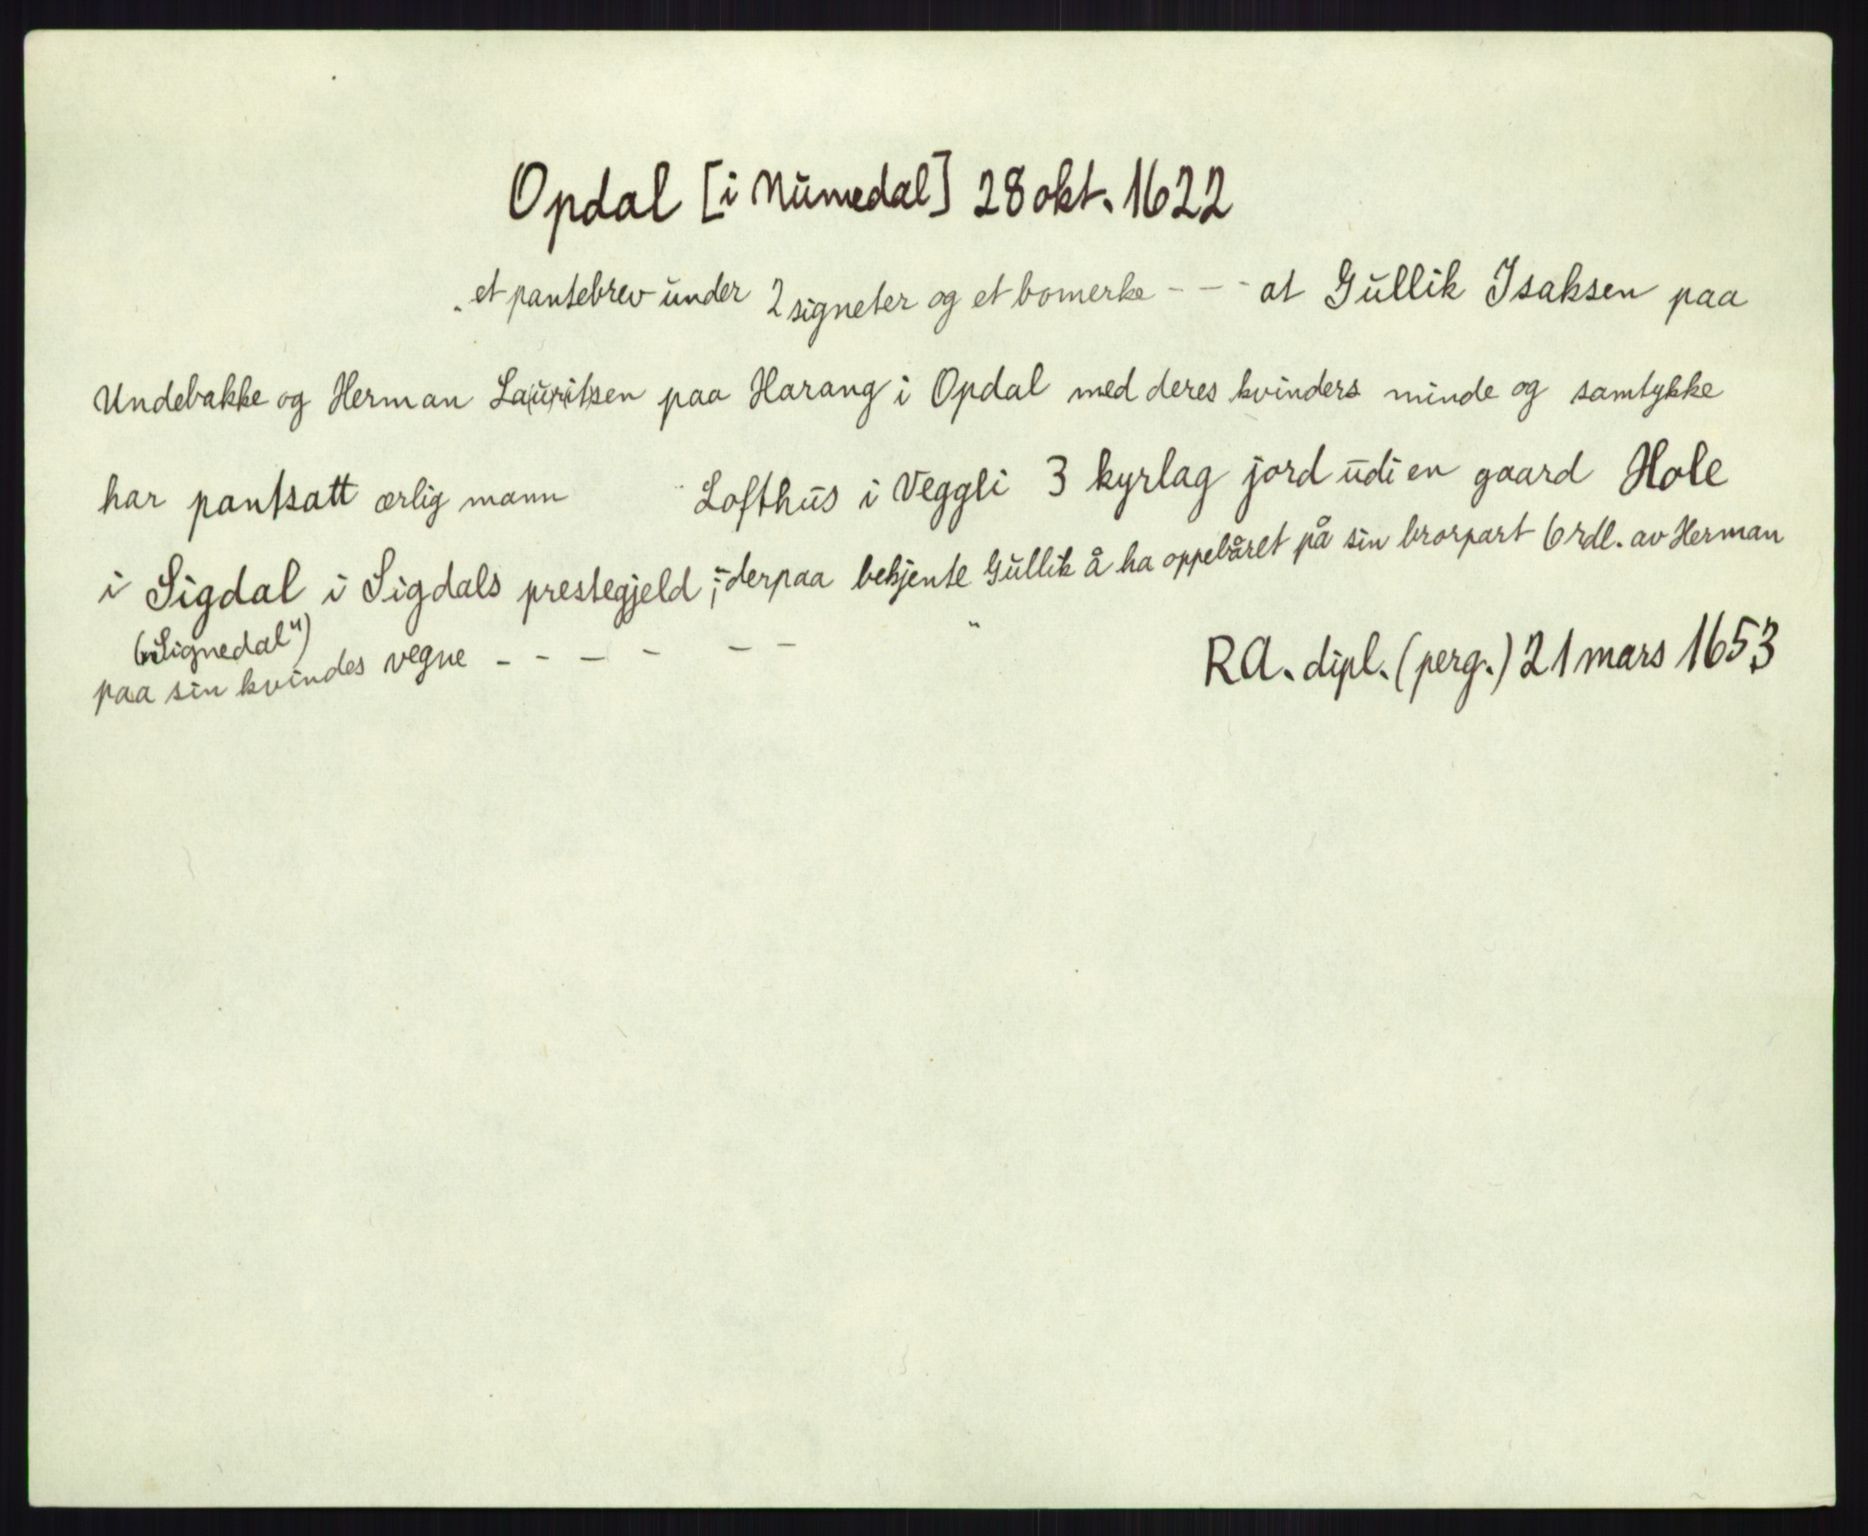 Opdal [i Numedal] 28 okt. 1622
„et pantebrev under 2 signeter og et bomerke - - - at Gullik Isaksen paa
Undebakke og Herman La(urit)sen paa Harang i Opdal med deres kvinders minde og samtykke
har pantsatt ærlig mann Lofthus i Veggli 3 kyrlag jord udi en gaard Hole
i Sigdal i Sigdals prestegjeld ; derpaa bekjente Gullik å ha oppebåret på sin brorpart 6 rdl. av Herman
(„Signedal")
paa sin kvindes vegne - - - - - - "
RA. dipl. (perg.) 21 mars 1653